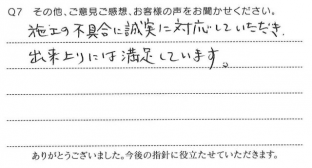 Q7 その他、ご意見ご感想、お客様の声をお聞かせください。
施工の不具合に誠実に対応していただき、
出来上りには満足しています。
ありがとうございました。今後の指針に役立たせていただきます。